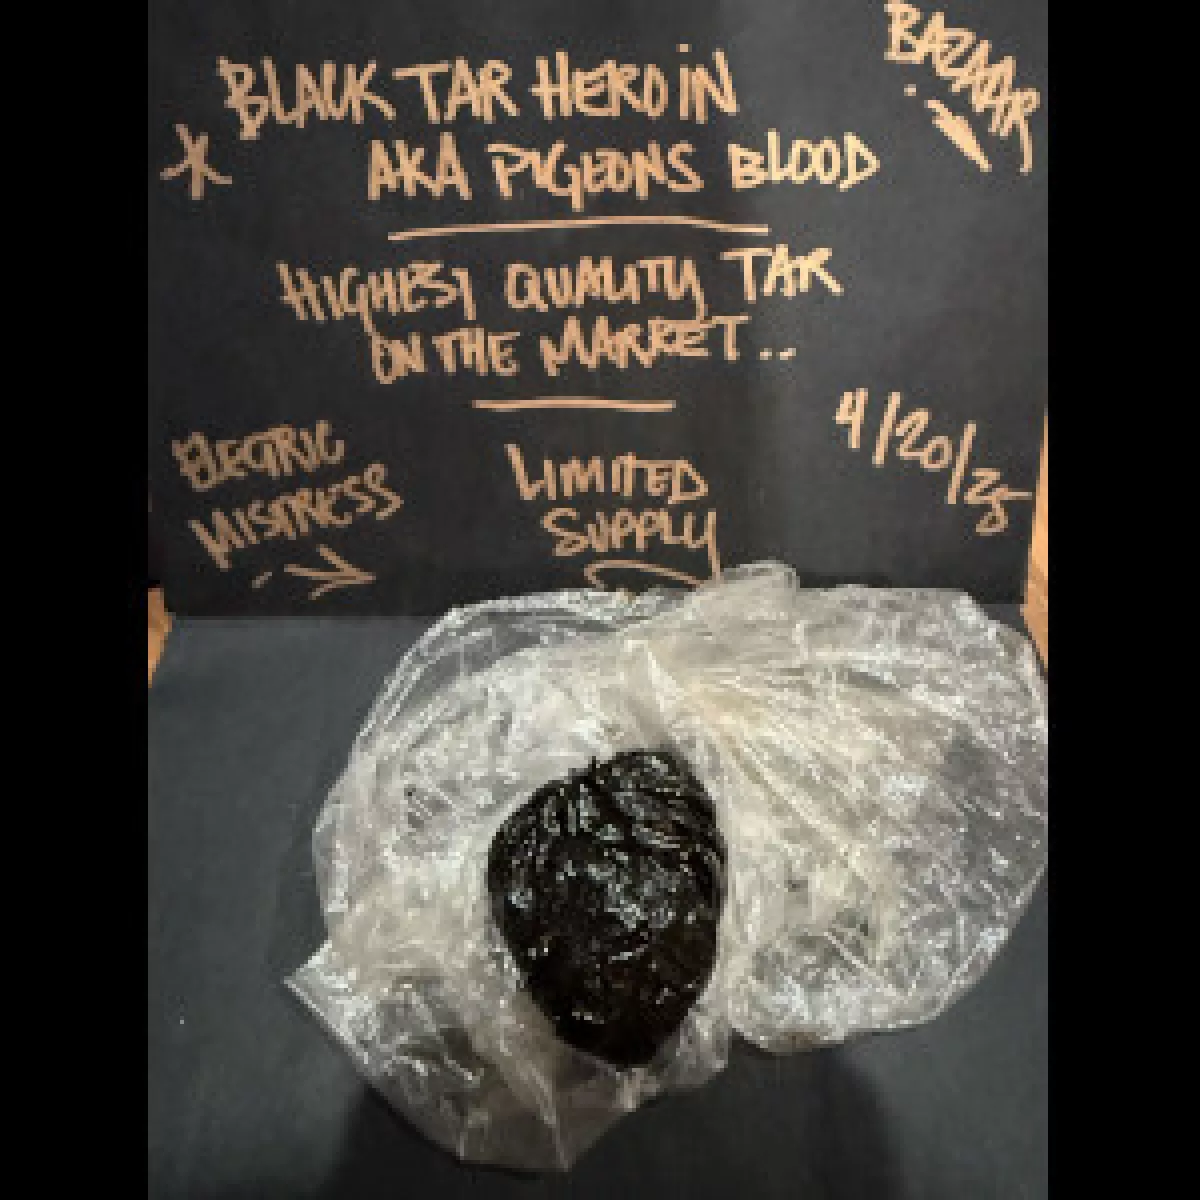 BAZAAR
BLACK TAR HEROIN
* AKA PIGEONS BLOOD
HIGHEST QUALITY TAR
ON THE MARKET..
4/20/25
ELECTRIC
MISTRESS
LIMITED
SUPPLY